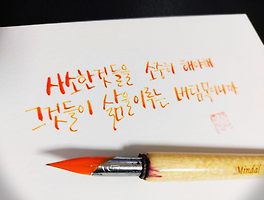 사소한것들을 소중히 해야해
그것들이 삶을이루는 버팀목이니까
Mindal